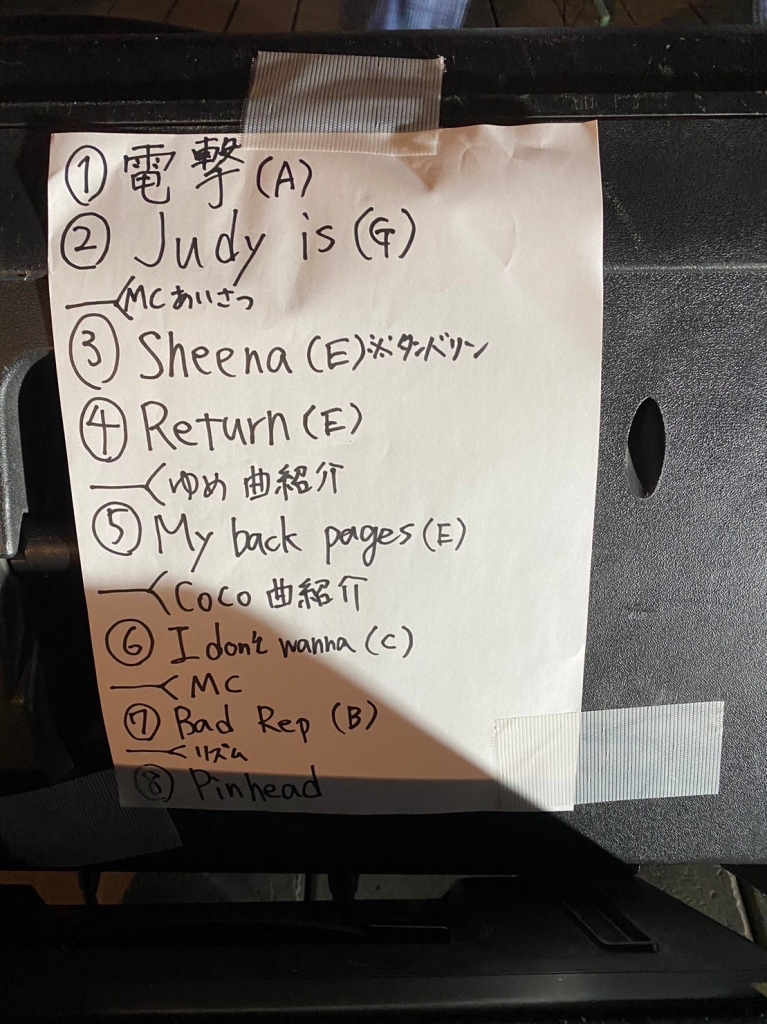 ① 電撃 (A)
② Judy is (G)
MC あいさつ
③ Sheena (E) ※タンバリン
④ Return (E)
ゆめ 曲紹介
⑤ My back pages (E)
CoCo 曲紹介
⑥ I don't wanna (C)
MC
⑦ Bad Rep (B)
リズム
⑧ Pinhead